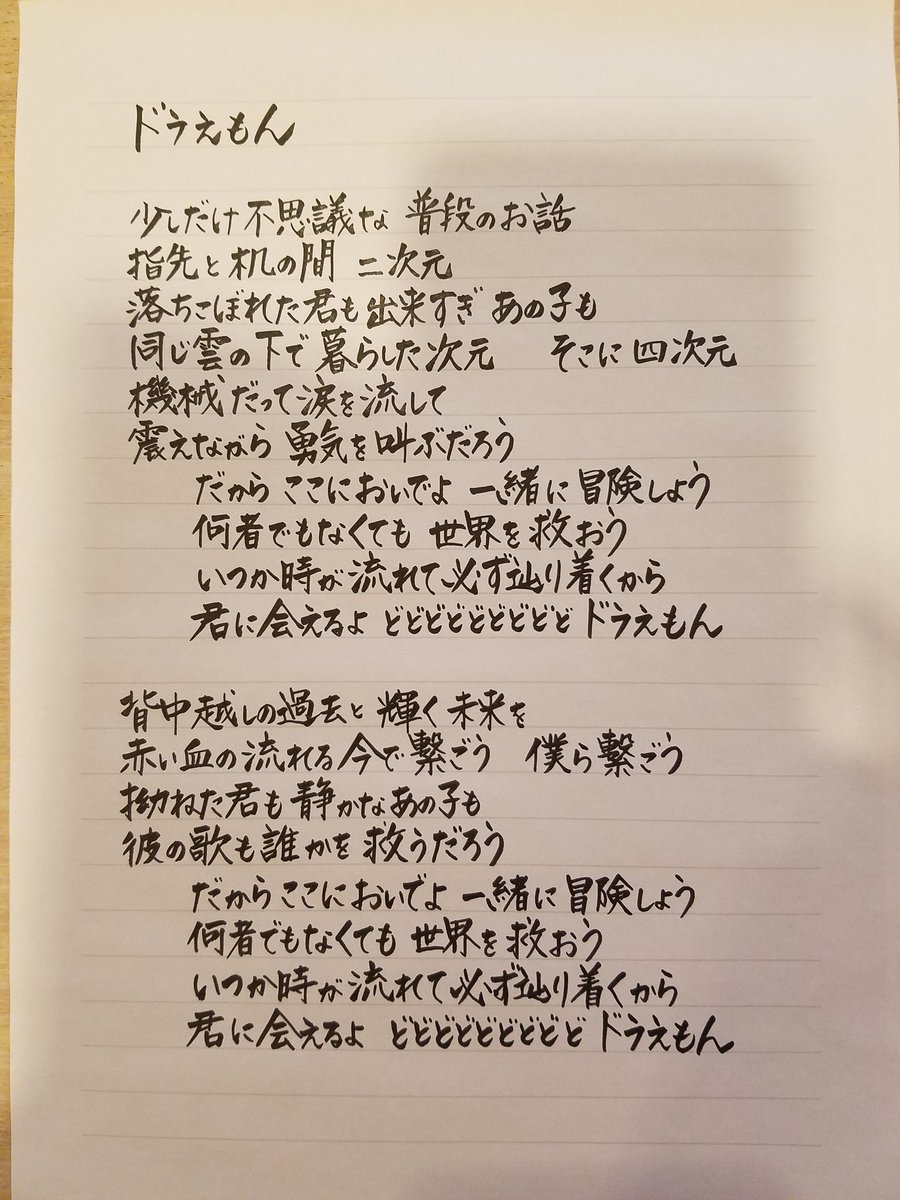 ドラえもん
少しだけ不思議な 普段のお話
指先と机の間 二次元
落ちこぼれた君も出来すぎ あの子も
同じ雲の下で暮らした次元 そこに四次元
機械だって涙を流して
震えながら 勇気を叫ぶだろう
だから ここにおいでよ 一緒に冒険しよう
何者でもなくても 世界を救おう
いつか時が流れて 必ず辿り着くから
君に会えるよ どどどどどどどどど ドラえもん
背中越しの過去と 輝く未来を
赤い血の流れる今で繋ごう 僕ら繋ごう
拗ねた君も静かなあの子も
彼の歌も誰かを 救うだろう
だから ここにおいでよ 一緒に冒険しよう
何者でもなくても 世界を救おう
いつか時が流れて 必ず辿り着くから
君に会えるよ どどどどどどどどど ドラえもん